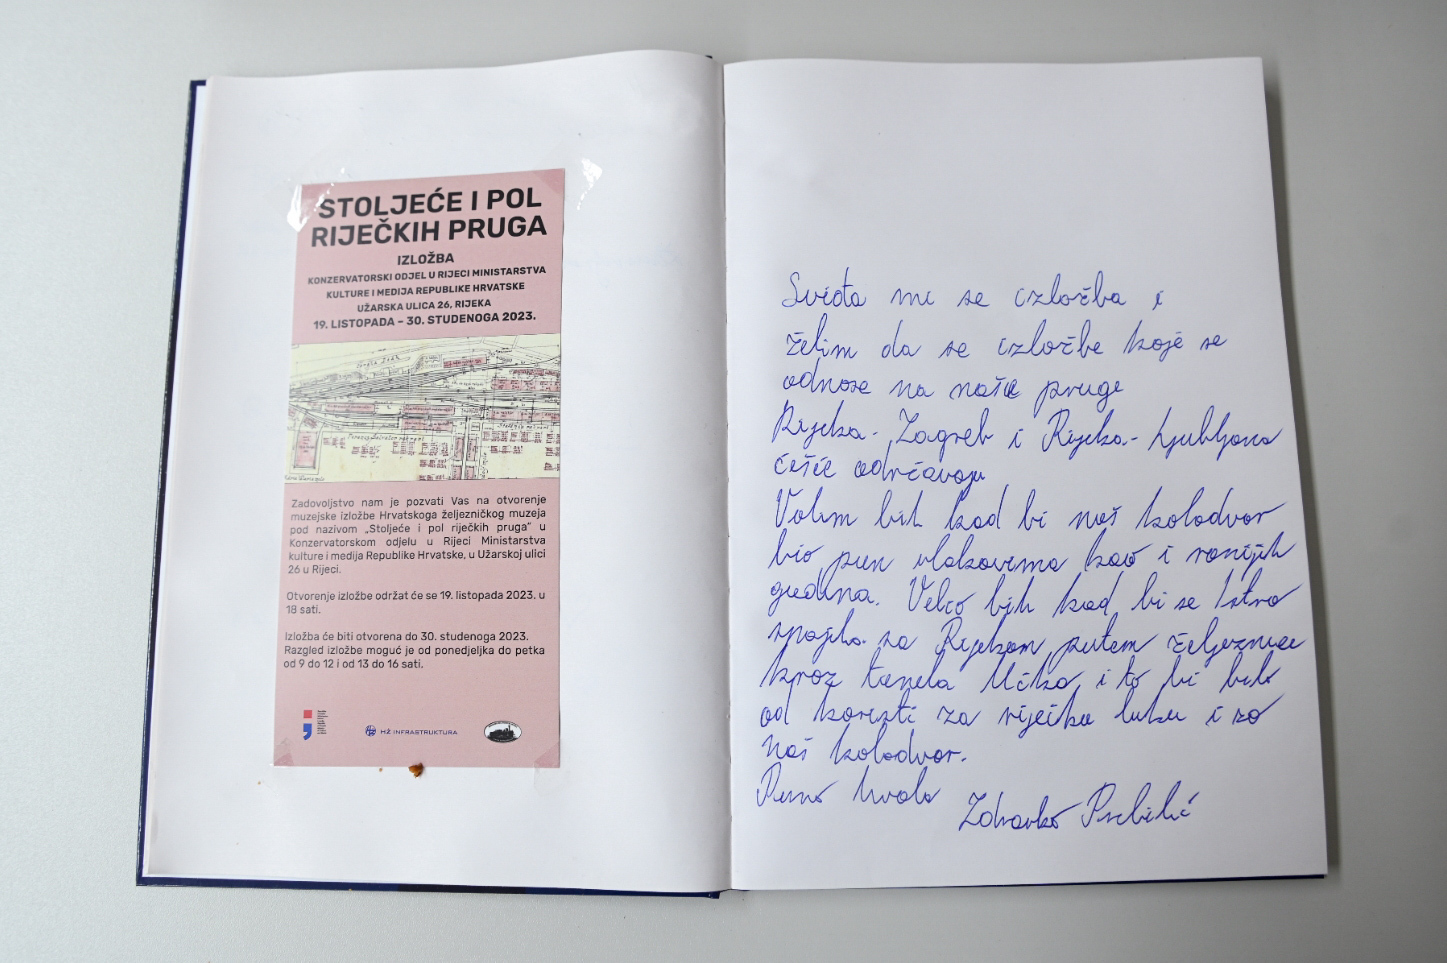 STOLJEĆE I POL
RIJEČKIH PRUGA
IZLOŽBA
KONZERVATORSKI ODJEL U RIJECI MINISTARSTVA
KULTURE I MEDIJA REPUBLIKE HRVATSKE
UŽARSKA ULICA 26, RIJEKA
19. LISTOPADA – 30. STUDENOGA 2023.
Zadovoljstvo nam je pozvati Vas na otvorenje
muzejske izložbe Hrvatskoga željezničkog muzeja
pod nazivom „Stoljeće i pol riječkih pruga" u
Konzervatorskom odjelu u Rijeci Ministarstva
kulture i medija Republike Hrvatske, u Užarskoj ulici
26 u Rijeci.
Otvorenje izložbe održat će se 19. listopada 2023. u
18 sati.
Izložba će biti otvorena do 30. studenoga 2023.
Razgled izložbe moguć je od ponedjeljka do petka
od 9 do 12 i od 13 do 16 sati.
HŽ INFRASTRUKTURA
Sviđa mi se izložba i
želim da se izložbe koje se
odnose na naše pruge
Rijeka - Zagreb i Rijeka - Ljubljana
češće održavaju
Volim bih kad bi naš kolodvor
bio pun vlakovima kao i ranijih
godina. Volio bih kad bi se Istra
spojila sa Rijekom putem željeznice
kroz tunela Učka i to bi bilo
od koristi za riječku luku i za
naš kolodvor.
Puno hvala
Zdravko